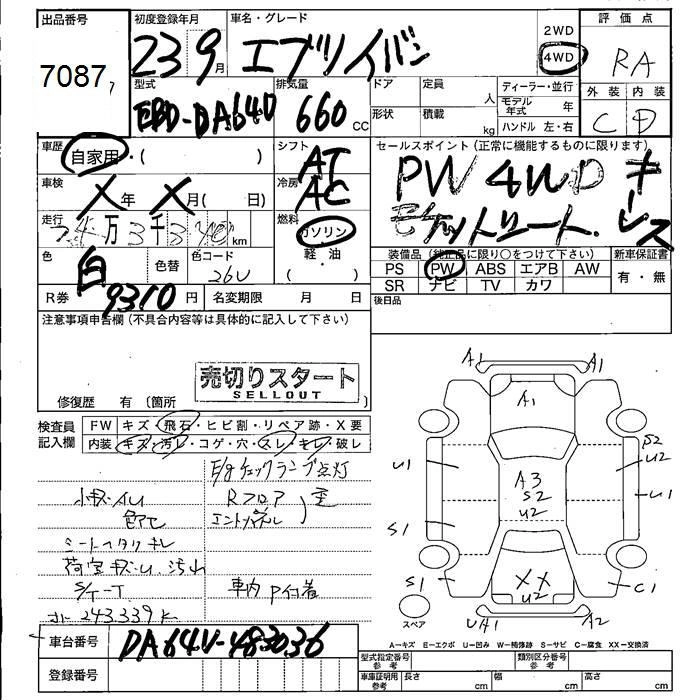 出品番号 初度登録年月 車名・グレード 2WD 評価点
7087 23年 9月 エブリイバン 4WD RA
型式 排気量 ドア 定員 人 ディーラー・並行 外装 内装
モデル年式 年
EBD-DA64V 660 CC 形状 積載 kg ハンドル 左・右 C D
車歴 自家用・( ) シフト AT セールスポイント(正常に機能するものに限ります)
車検 X年 X月( 日) 冷房 AC PW 4WD キーレス
走行 万 3千3 km 燃料 ガソリン・軽油 シート.
色 白 色替 色コード 26U 装備品(純正品に限り○をつけて下さい) 新車保証書
PS PW ABS エアB AW 有・無
R券 9310円 名変期限 月 日 SR ナビ TV カワ
後日品
注意事項申告欄(不具合内容等は具体的に記入して下さい)
売切りスタート
SELLOUT
修復歴 有 〔箇所 〕
検査員記入欄 FW キズ・飛石・ヒビ割・リペア跡・X要
内装 キズ・汚レ・コゲ・穴・スレ・キレ・破レ
E/gチェックランプ点灯
小キズ・AU Rフロア
シートヘタリ キレ
荷室 キズ・U. 汚れ
S/T-T 車内 P付着
243.339K
A1 A1
A1
U1 S2 U2
A3 S2 U2 U1
S1
S1 XX U2 C1
スペア UA1 A2
A=キズ E=エクボ U=凹み W=補修跡 S=サビ C=腐食 XX=交換済
車台番号 DA64V-483036
型式指定番号参考 No. 類別区分番号参考 No.
登録番号 車庫証明用参考 長さ cm 幅 cm 高さ cm